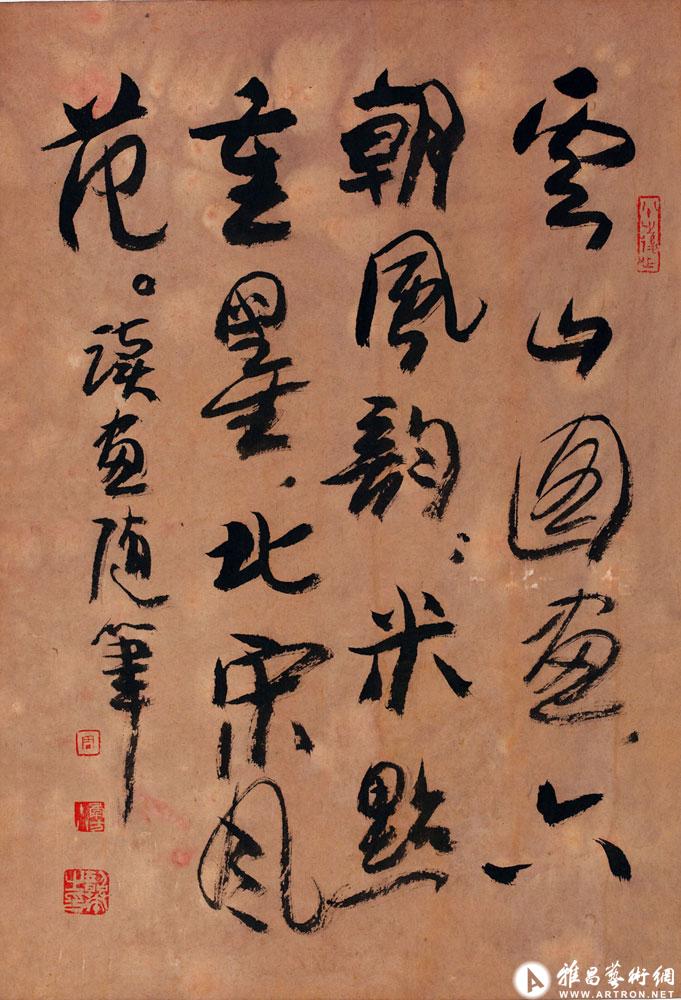 雲山圖畫、六
朝風韵；米點
重墨、北宋風
范。讀畫随筆
周
雅昌藝術網
WWW.ARTRON.NET